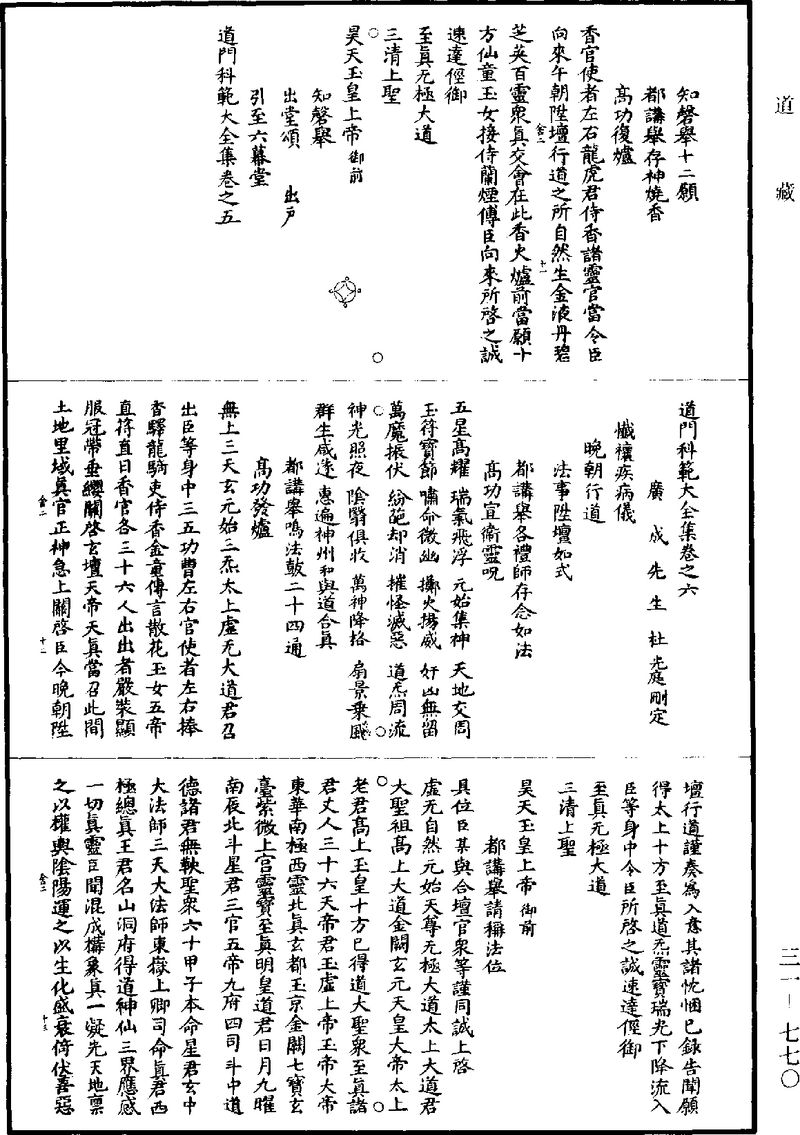 道藏
知磬舉十二願
都講舉存神燒香
高功復爐
香官使者左右龍虎君侍香諸靈官當令臣
向來午朝陞壇行道之所自然生金液丹碧
芝英百靈衆真交會在此香火爐前當願十
方仙童玉女接侍蘭煙傳臣向來所啓之誠
速達徑御
至真无極大道
三清上聖
昊天玉皇上帝御前
知磬舉
出堂頌 出戶
引至六幕堂
道門科範大全集卷之五
道門科範大全集卷之六
廣成先生杜光庭刪定
懺禳疾病儀
晚朝行道
法事陞壇如式
都講舉各禮師存念如法
高功宣衛靈呪
五星高耀 瑞氣飛浮 元始集神 天地交周
玉符寶節 嘯命微幽 擲火揚威 奸凶無留
萬魔振伏 紛葩却消 摧怪滅惡 道炁周流
神光照夜 陰翳俱收 萬神降格 扇景乘飈
群生咸遂 惠遍神州 和與道合真
都講舉鳴法鼓二十四通
高功發爐
無上三天玄元始三炁太上虛无大道君召
出臣等身中三五功曹左右官使者左右捧
香驛龍騎吏侍香金童傳言散花玉女五帝
直符直日香官各三十六人出出者嚴裝顯
服冠帶垂纓關啓玄壇天帝天真當召此間
土地里域真官正神急上關啓臣今晚朝陞
壇行道謹奏爲入意其諸忱悃已錄告聞願
得太上十方至真道炁靈寶瑞光下降流入
臣等身中令臣所啓之誠速達徑御
至真无極大道
三清上聖
昊天玉皇上帝御前
都講舉請稱法位
具位臣某與合壇官衆等謹同誠上啓
虛无自然元始天尊无極大道太上大道君
大聖祖高上大道金闕玄元天皇大帝太上
老君高上玉皇十方已得道大聖衆至真諸
君丈人三十六天帝君玉虛上帝玉帝大帝
東華南極西靈北真玄都玉京金闕七寶玄
臺紫微上宮靈寶至真明皇道君日月九曜
南辰北斗星君三官五帝九府四司斗中道
德諸君無鞅聖衆六十甲子本命星君玄中
大法師三天大法師東嶽上卿司命真君西
極總真王君名山洞府得道神仙三界應感
一切真靈臣聞混成構象真一凝先天地稟
之以權輿陰陽運之以生化盛衰倚伏善惡
三一－七七〇